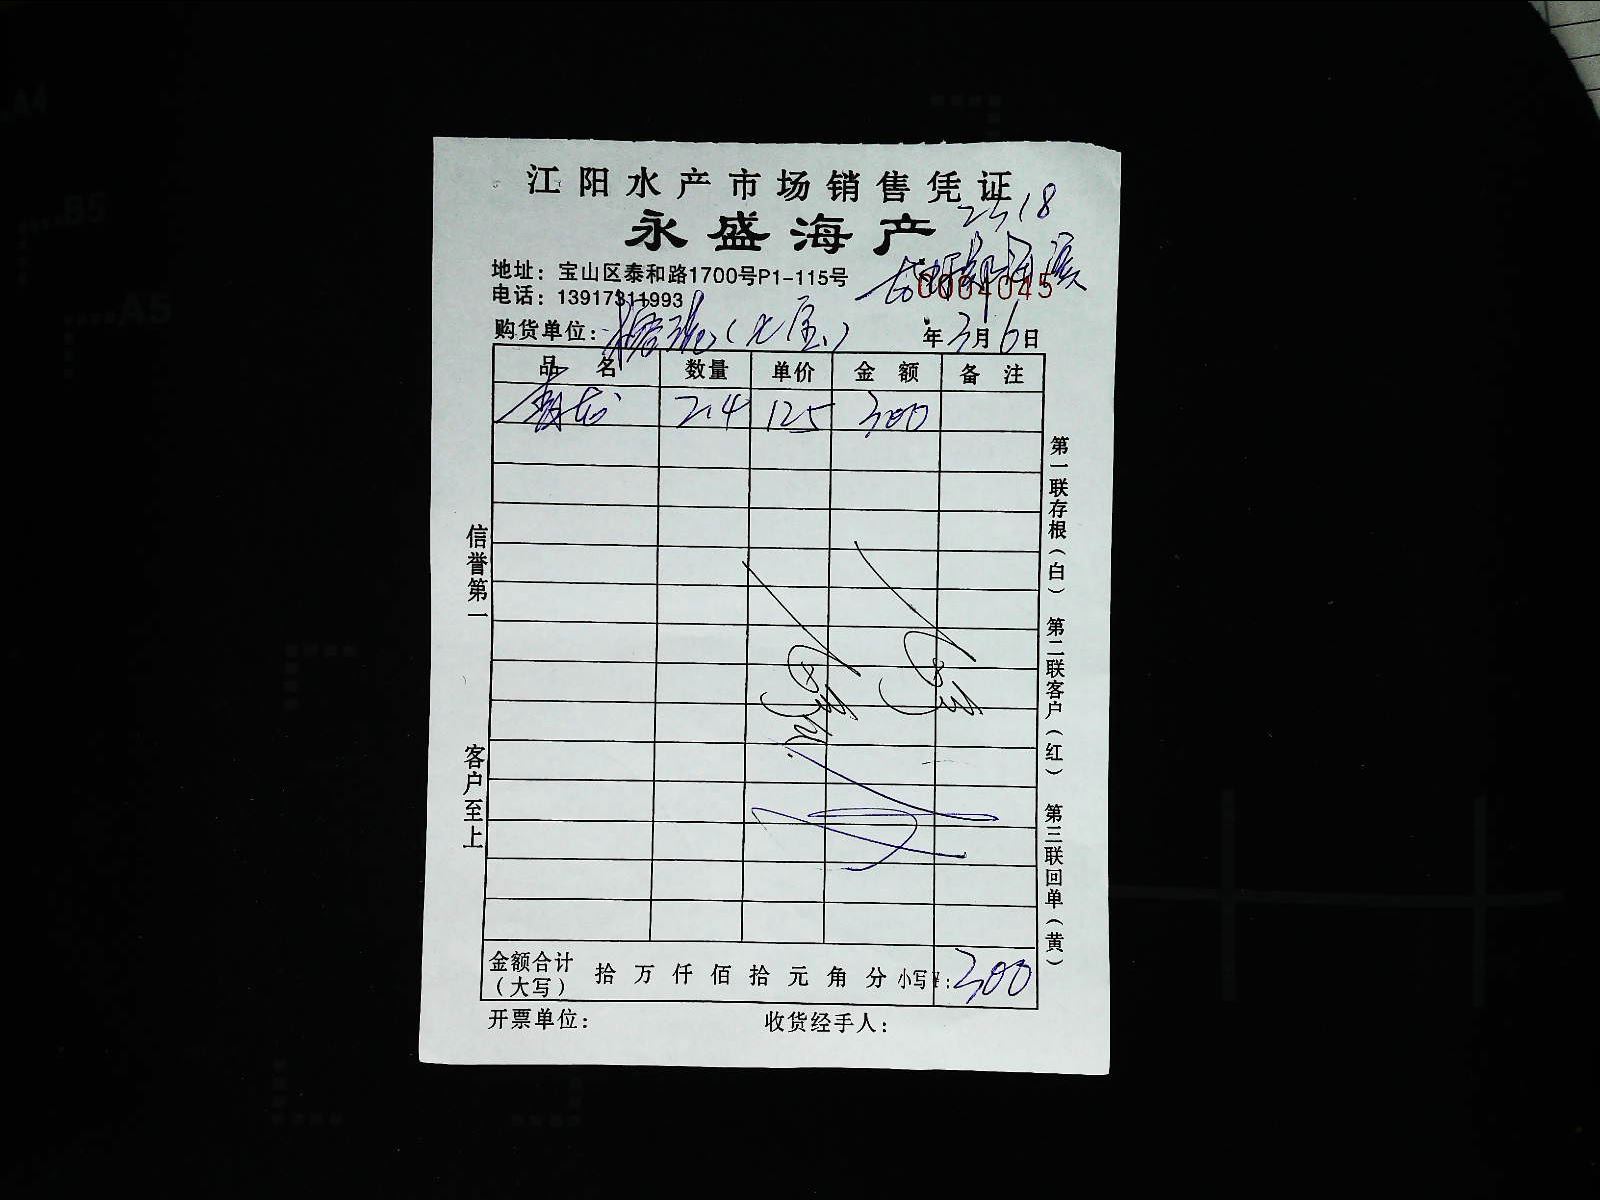 江阳水产市场销售凭证
2518
永盛海产
地址：宝山区泰和路1700号P1-115号
0004045
电话：13917311993
购货单位： 年3月6日
品名 数量 单价 金额 备注
青龙 2.4 125 300
第一联存根（白） 第二联客户（红） 第三联回单（黄）
信誉第一 客户至上
金额合计（大写） 拾万仟佰拾元角分 小写¥：300
开票单位： 收货经手人：
A4
B5
A5